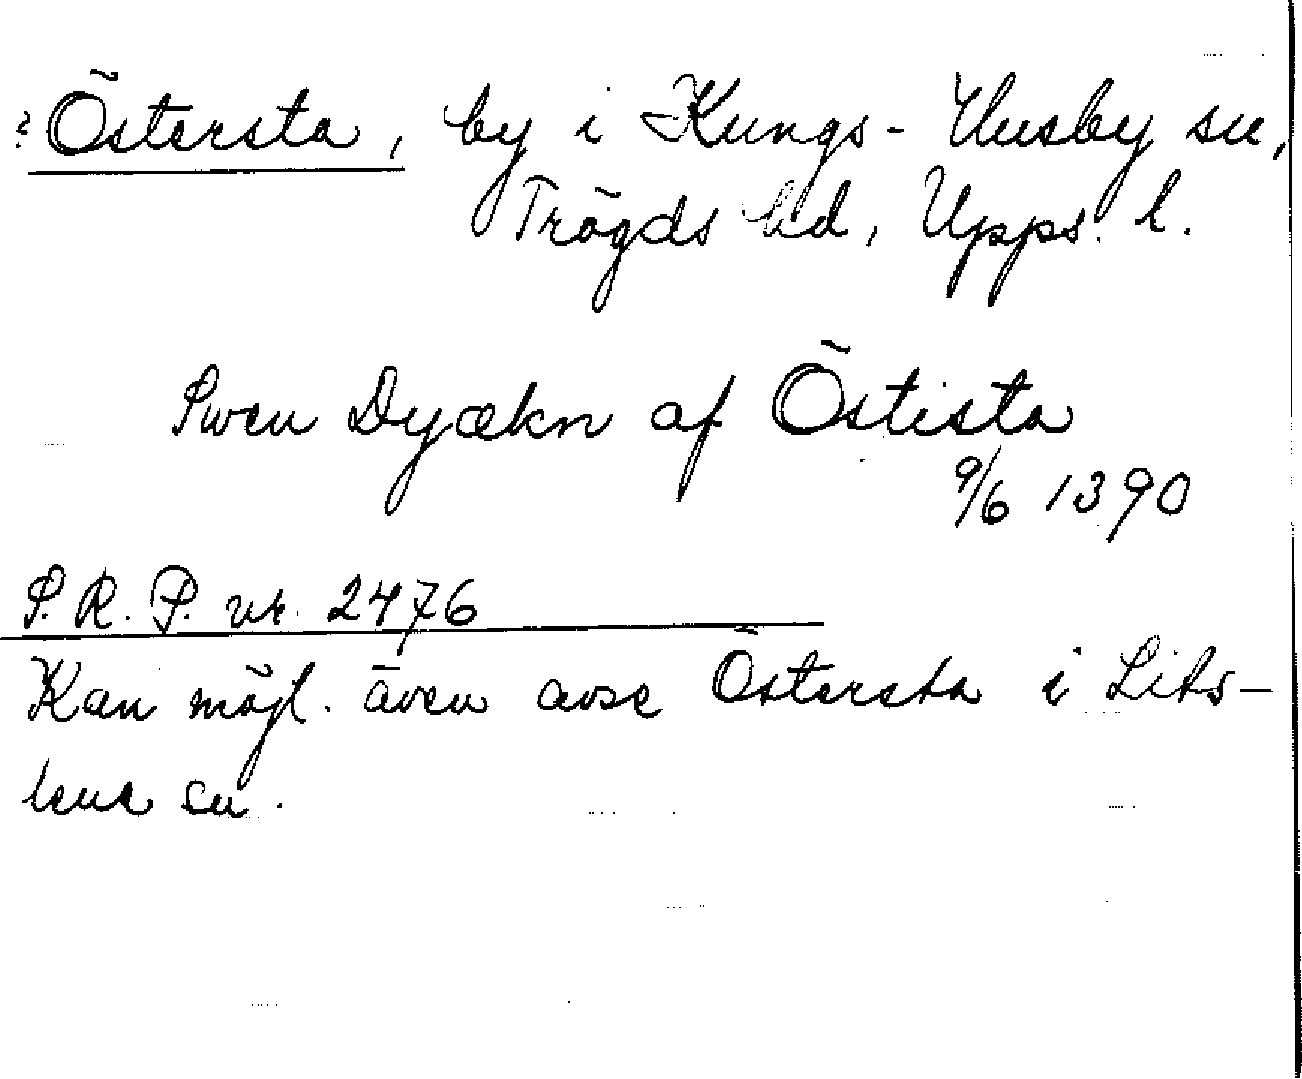 ? Östersta, by i Kungs-Husby sn,
Trögds hd, Upps. l.
Swen Dyækn af Östista
9/6 1390
S. R. P. nr. 2476
Kan möjl. även avse Östersta i Lits-
lena sn.